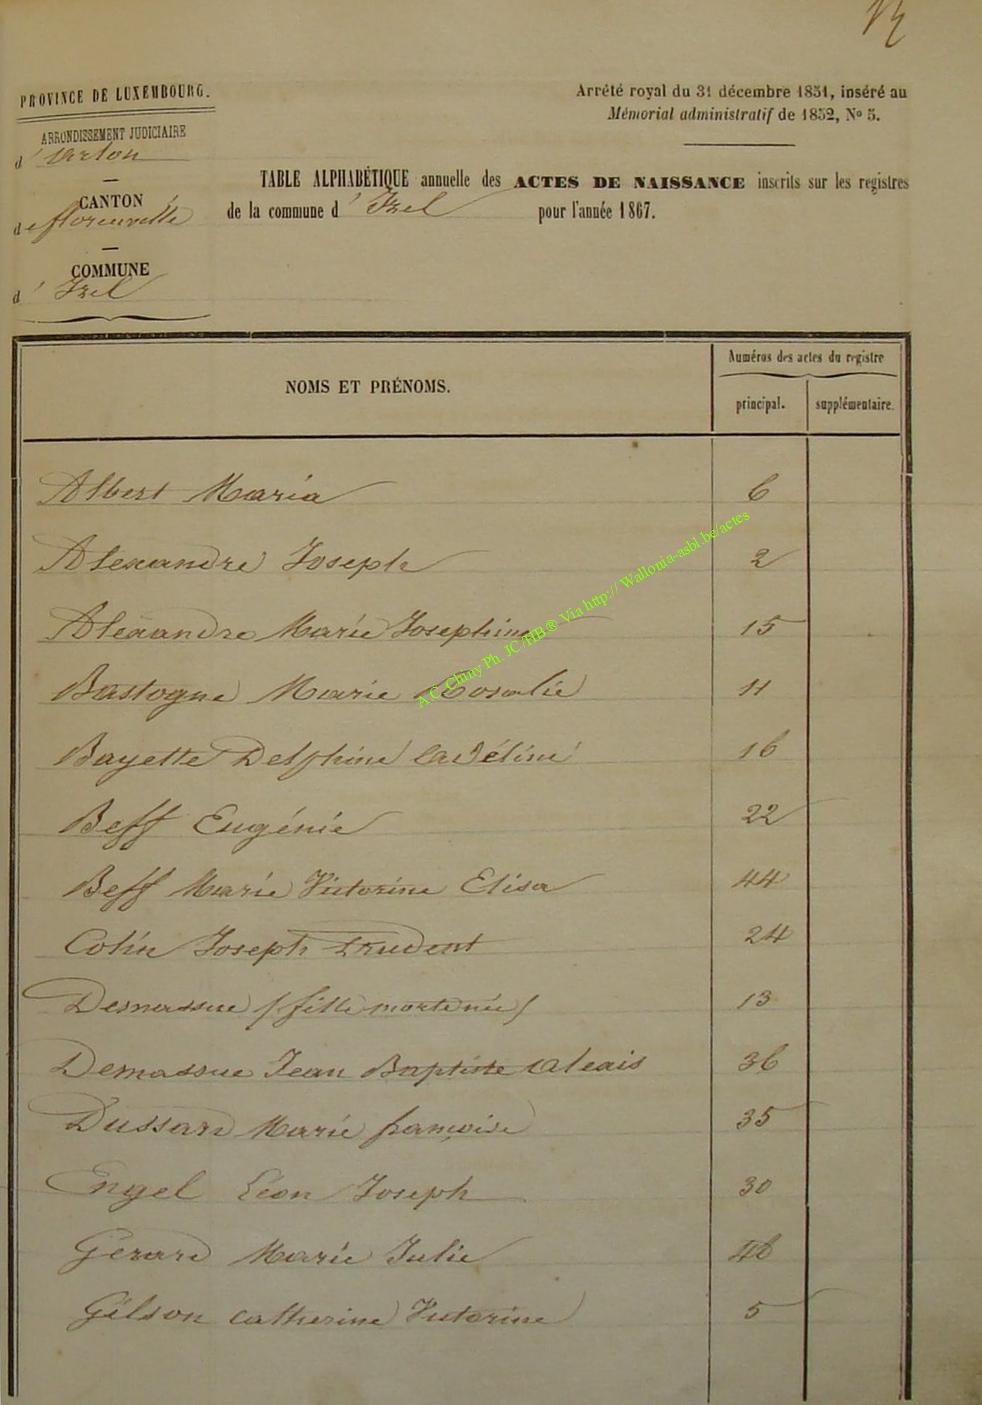 PROVINCE DE LUXEMBOURG.
ARRONDISSEMENT JUDICIAIRE
d' Arlon
CANTON
de florenville
COMMUNE
d' Izel
Arrété royal du 31 décembre 1831, inséré au
Mémorial administratif de 1832, No 5.
TABLE ALPHABÉTIQUE annuelle des ACTES DE NAISSANCE inscrits sur les registres
de la commune d' Izel pour l'année 1867.
NOMS ET PRÉNOMS.
Numéros des actes du registre
principal. supplémentaire.
Albert Maria 6
Alexandre Joseph 2
Alexandre Marie Josephine 15
Bastogne Marie Rosalie 11
Bayette Delphine Adéline 16
Beff Eugénie 22
Beff Marie Victorine Elisa 44
Colin Joseph Prudent 24
Demassue (fille mort née) 13
Demassue Jean Baptiste Alexis 36
Dussard Marie françoise 35
Engel Léon Joseph 30
Gerard Marie Julie 46
Gilson Catherine Victorine 5
A.C. Chiny Ph. JC/HB® Via http:// Wallonia-asbl.be/actes